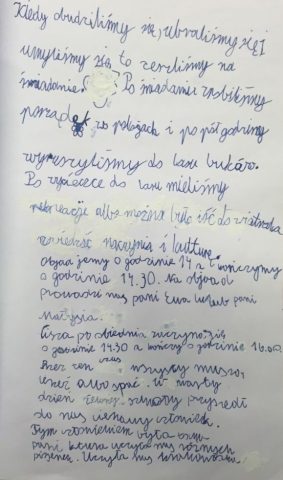 Kiedy obudziliśmy się, ubraliśmy się i
umyliśmy się to zeszliśmy na
śniadanie. Po śniadaniu zrobiliśmy
porządek w pokojach i po pół godziny
wyruszyliśmy do lasu buków.
Po wycieczce do lasu mieliśmy
rekreacje albo można było iść do
zwiedzać naczynia i kulture.
Objad jemy o godzinie 14 a kończymy
o godzinie 14.30. Na objad
prowadzi nas pani Ewa lub pani
Małgysia.
Cisza po obiednia zaczyna się
o godzinie 14.30 a kończy o godzinie 16.00.
Przez ten czas wszyscy muszą
leżeć albo spać. W
dzień przyszedł
do nas ciekawy człowiek.
Tym człowiekiem była
pani ktura uczyła nas różnych
piosenek. Uczyła nas